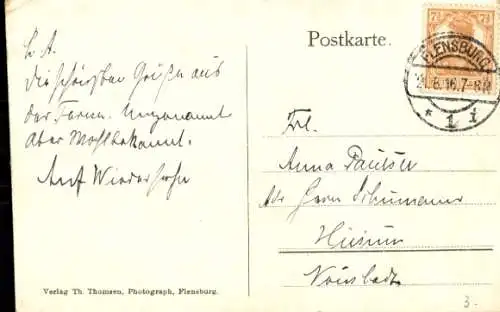 L. A.
Die schönsten Grüße aus
der Ferne. Ungenannt
Aber Wohlbekannt.
Auf Wiedersehn
Verlag Th. Thomsen, Photograph, Flensburg.
Postkarte.
7½
7½
FLENSBURG
8.16.7-8
* 1 i
Frl.
Anna Paulsen
Adr Herrn Schumann
Husum
3.